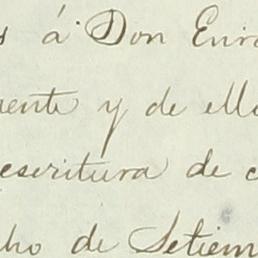 s á Don Enr
mente y de ello
escritura de c
cho de Setiem